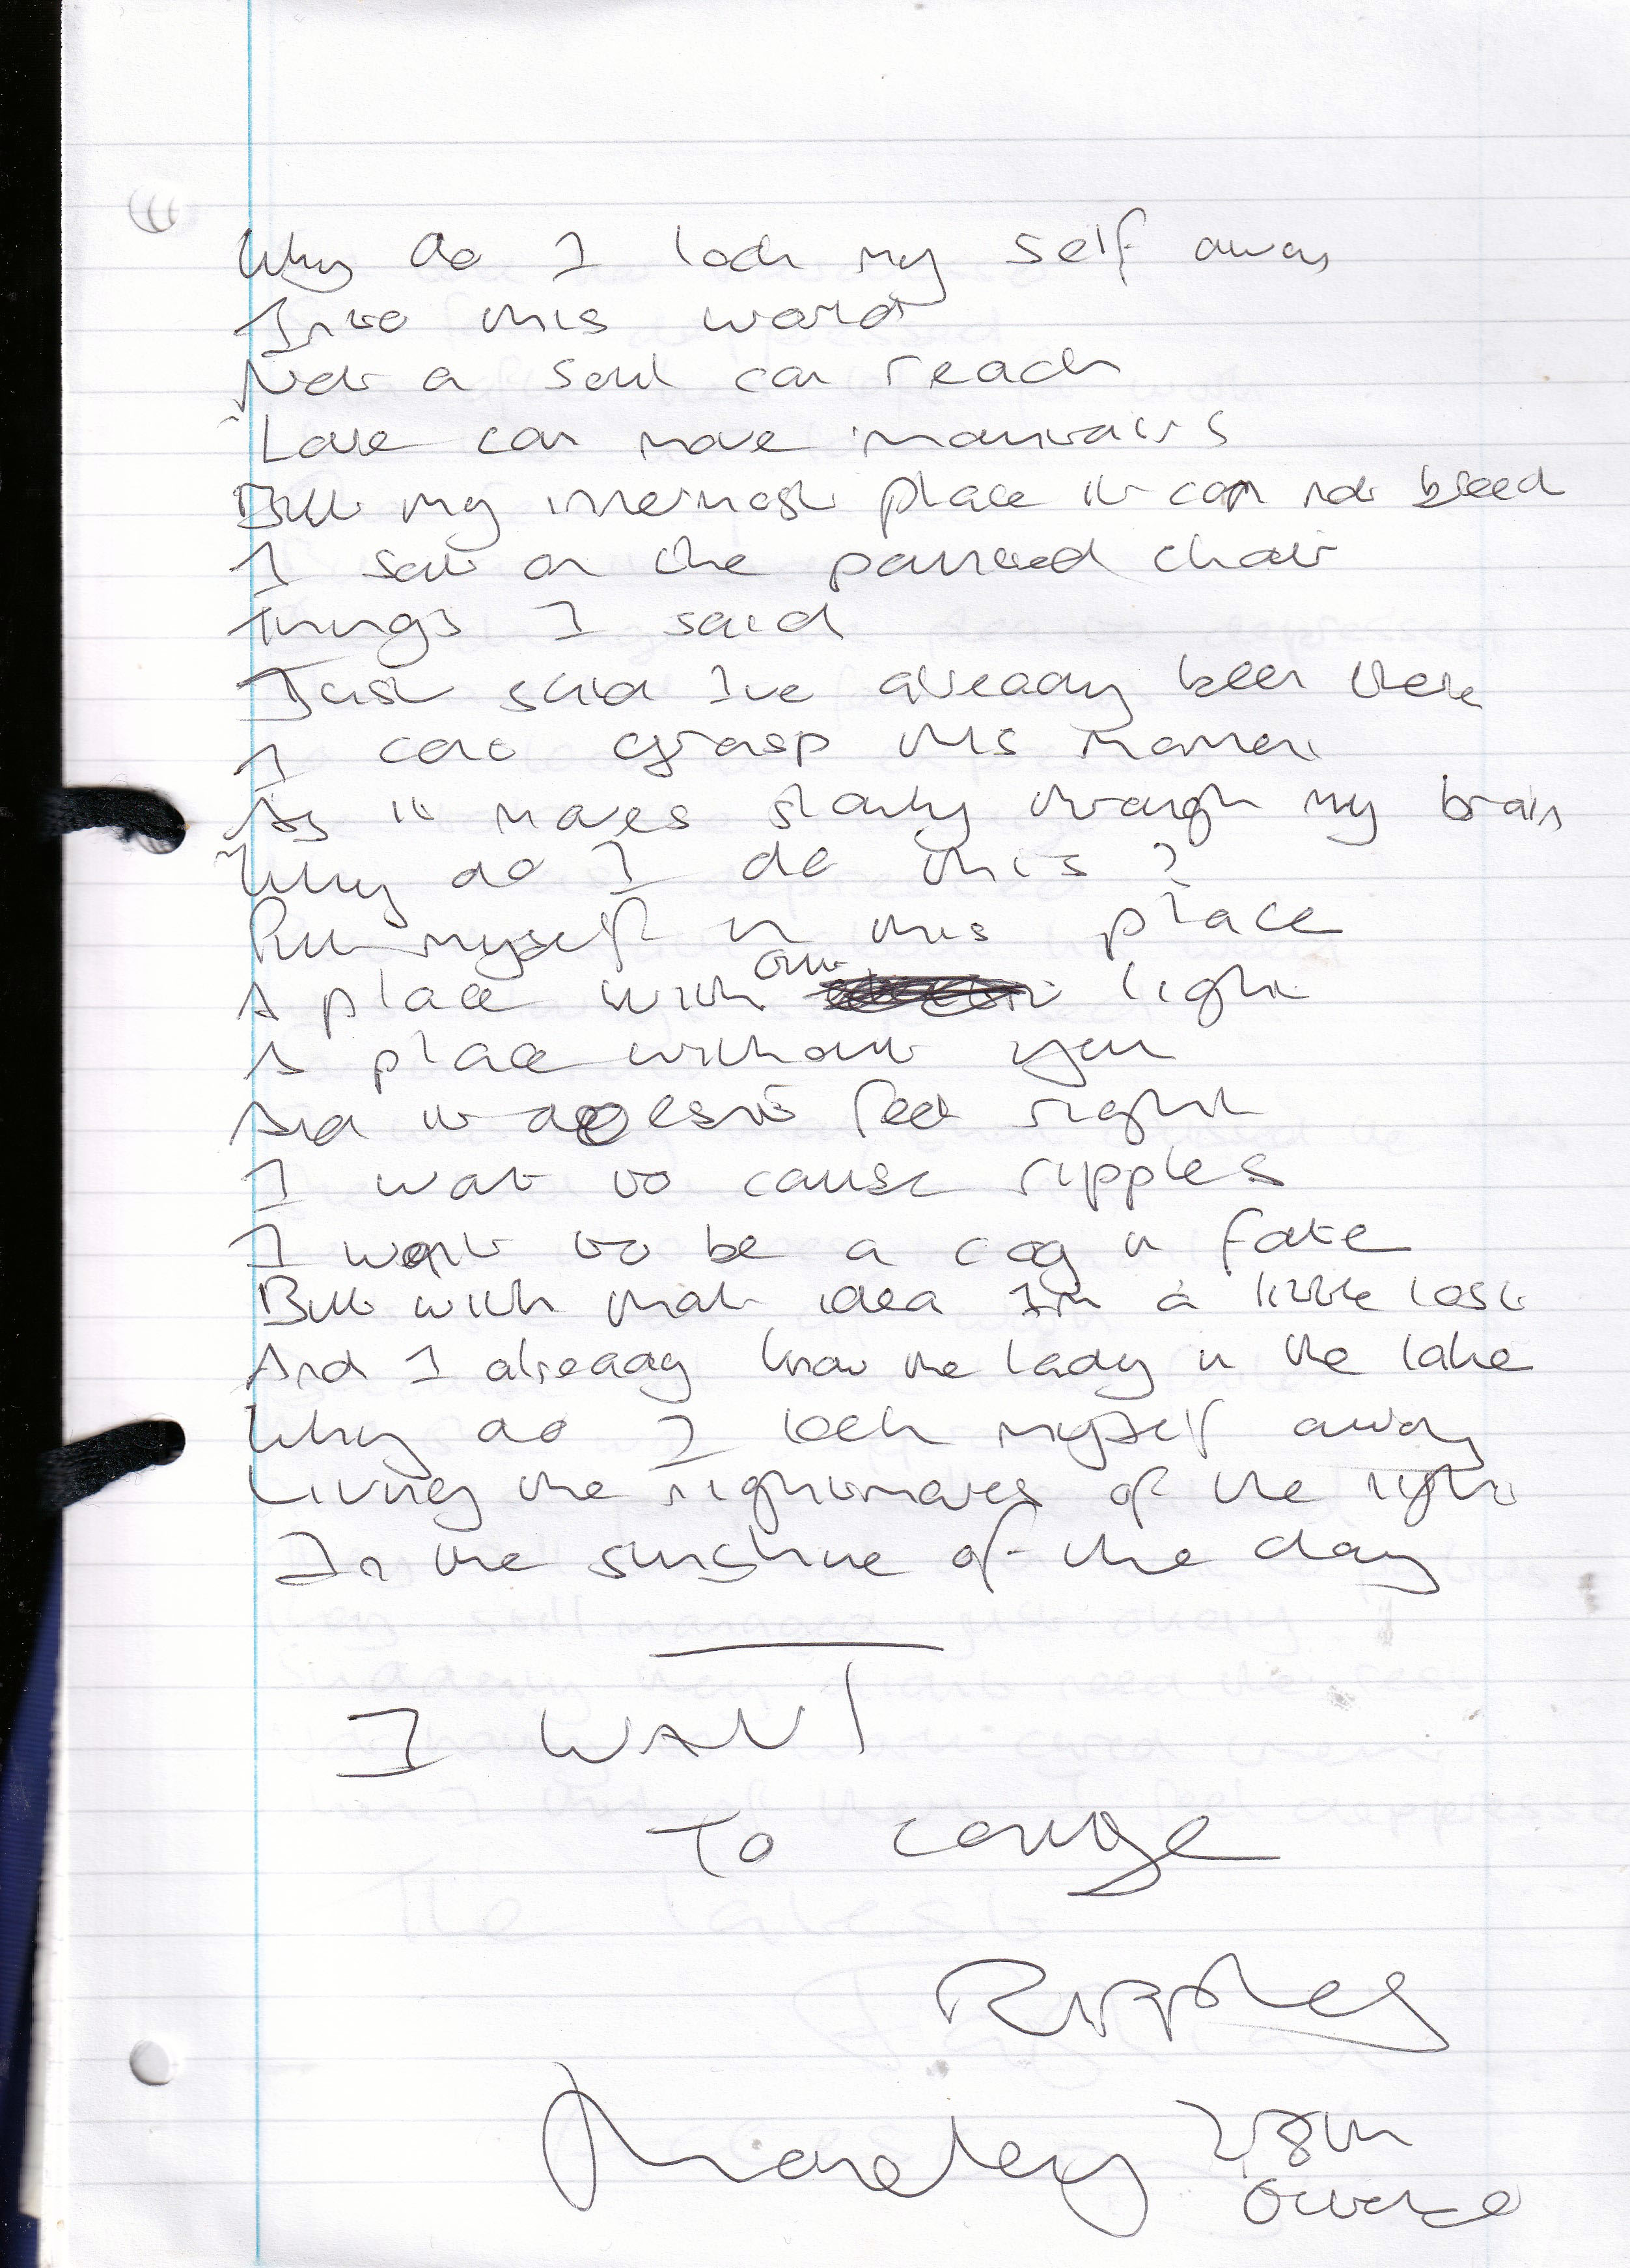 Why do I lock my self away
Into this world
Not a soul can reach
Love can move mountains
But my innermost place it can not bleed
I sat on the painted chair
Things I said
Just said Ive already been there
I cant grasp this moment
As it moves slowly through my brain
Why do I do this?
Put myself in this place
A place without light
A place without you
And it doesnt feel right
I want to cause ripples
I want to be a cog in fate
But with that idea Im a little lost
And I already know the lady in the lake
Why do I lock myself away
Living the nightmares of the night
In the sunshine of the day
I WANT
To cause
Ripples
28th